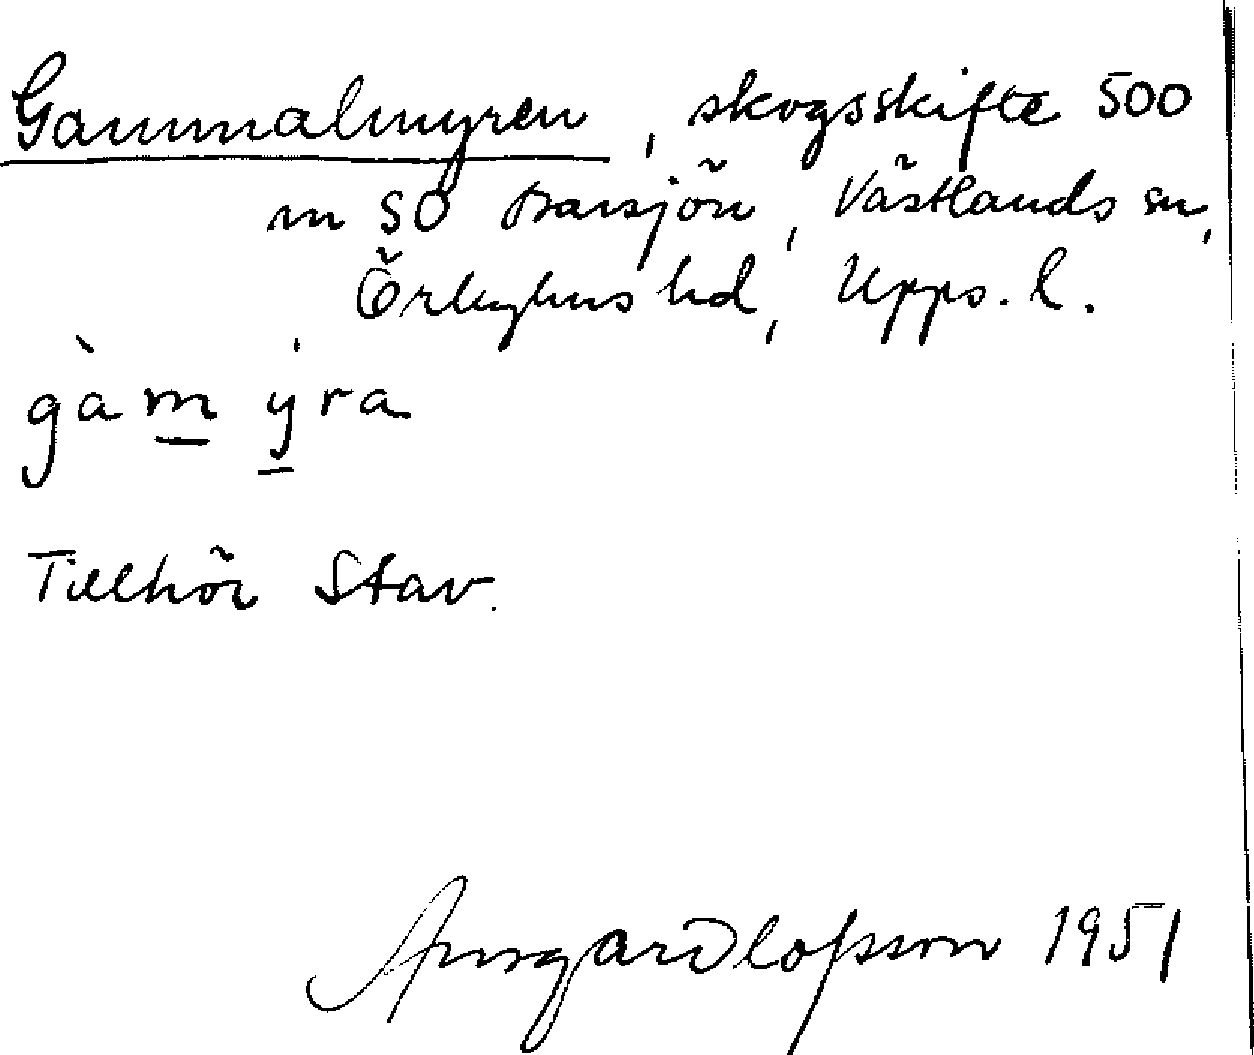 Gammalmyren, skogsskifte 500
m SO Barsjön, Västlands sn,
Örbyhus hd, Upps. l.
gàm ýra
Tillhör Stav.
Ansgar Olofsson 1951